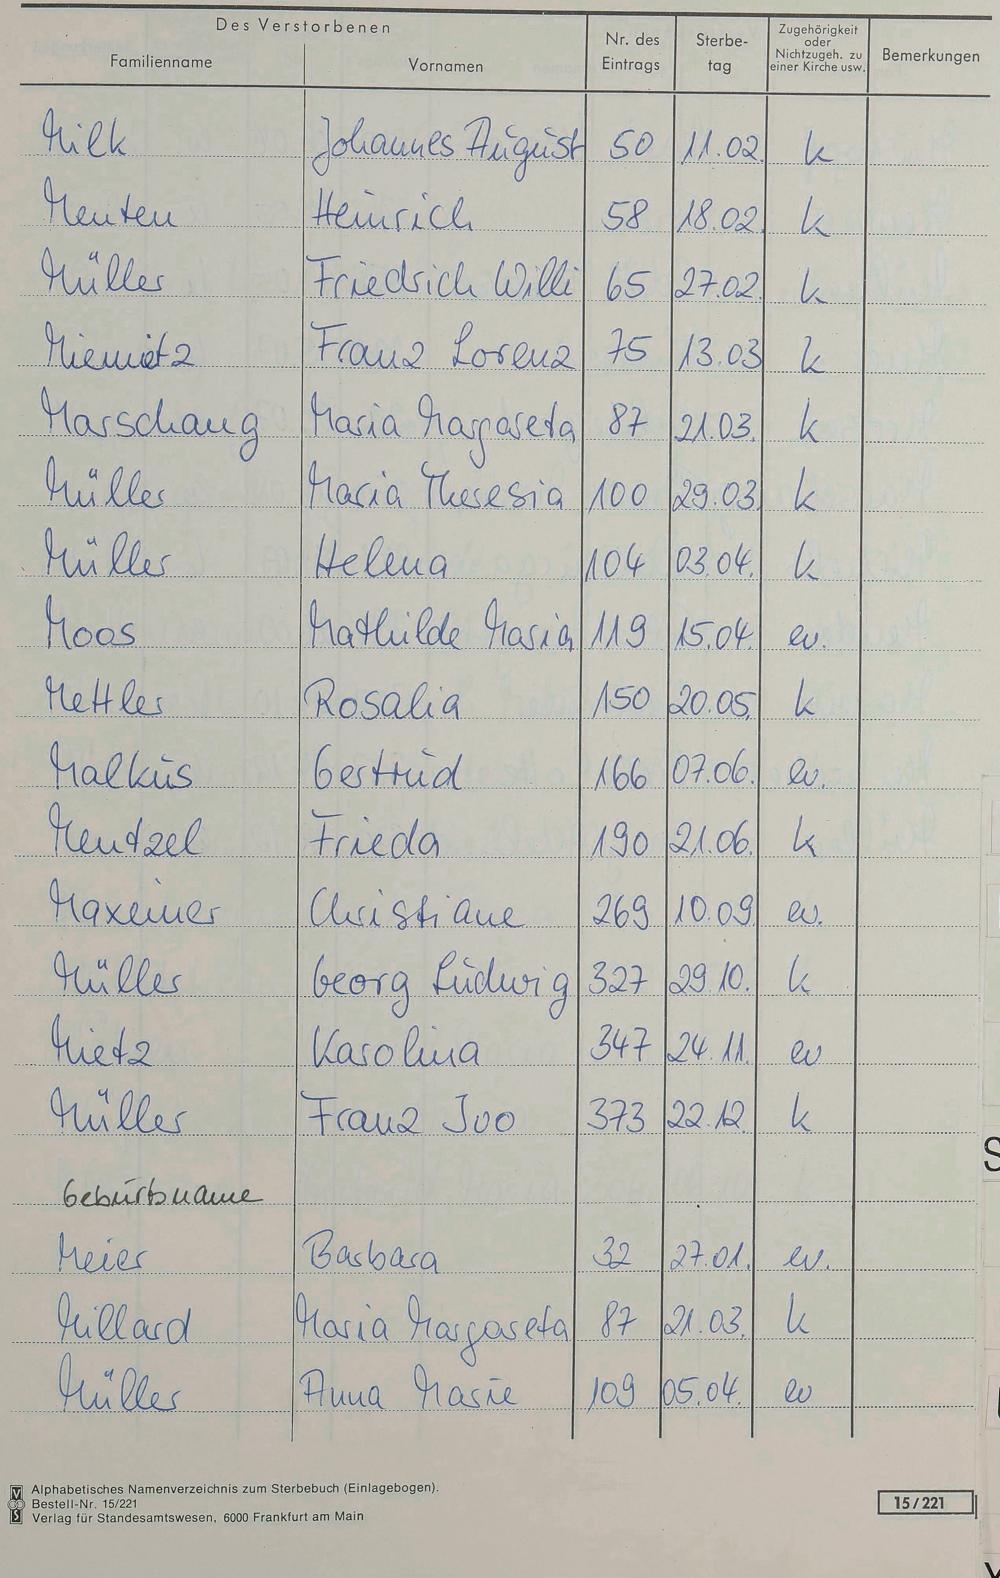 Des Verstorbenen
Familienname Vornamen Nr. des Eintrags Sterbe-tag Zugehörigkeit oder Nichtzugeh. zu einer Kirche usw. Bemerkungen
Milk Johannes August 50 11.02. k
Menten Heinrich 58 18.02. k
Müller Friedrich Willi 65 27.02. k
Miemietz Franz Lorenz 75 13.03 k
Marschang Maria Margareta 87 21.03. k
Müller Maria Theresia 100 29.03. k
Müller Helena 104 03.04. k
Moos Mathilde Maria 119 15.04. ev.
Mettler Rosalia 150 20.05. k
Malkus Gertrud 166 07.06. ev.
Mentzel Frieda 190 21.06. k
Maxeiner Christiane 269 10.09. ev.
Müller Georg Ludwig 327 29.10. k
Mietz Karolina 347 24.11. ev
Müller Franz Ivo 373 22.12. k
Geburtsname
Meier Barbara 32 27.01. ev.
Millard Maria Margareta 87 21.03. k
Müller Anna Marie 109 05.04. ev
Alphabetisches Namenverzeichnis zum Sterbebuch (Einlagebogen).
Bestell-Nr. 15/221
Verlag für Standesamtswesen, 6000 Frankfurt am Main
15/221